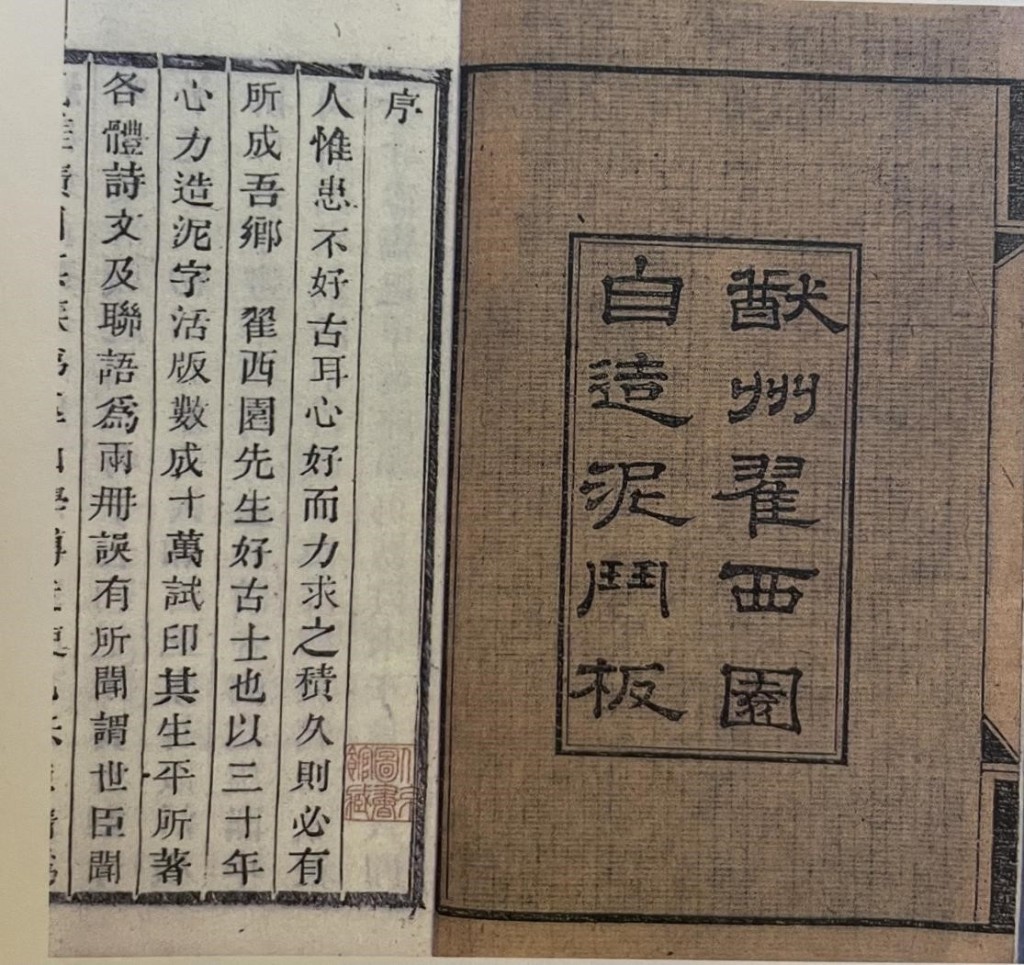 猷州翟西園
自造泥鬥板
序
人惟患不好古耳心好而力求之積久則必有
所成吾鄉 翟西園先生好古士也以三十年
心力造泥字活版數成十萬試印其生平所著
各體詩文及聯語爲兩冊誤有所聞謂世臣聞
圖書
館藏